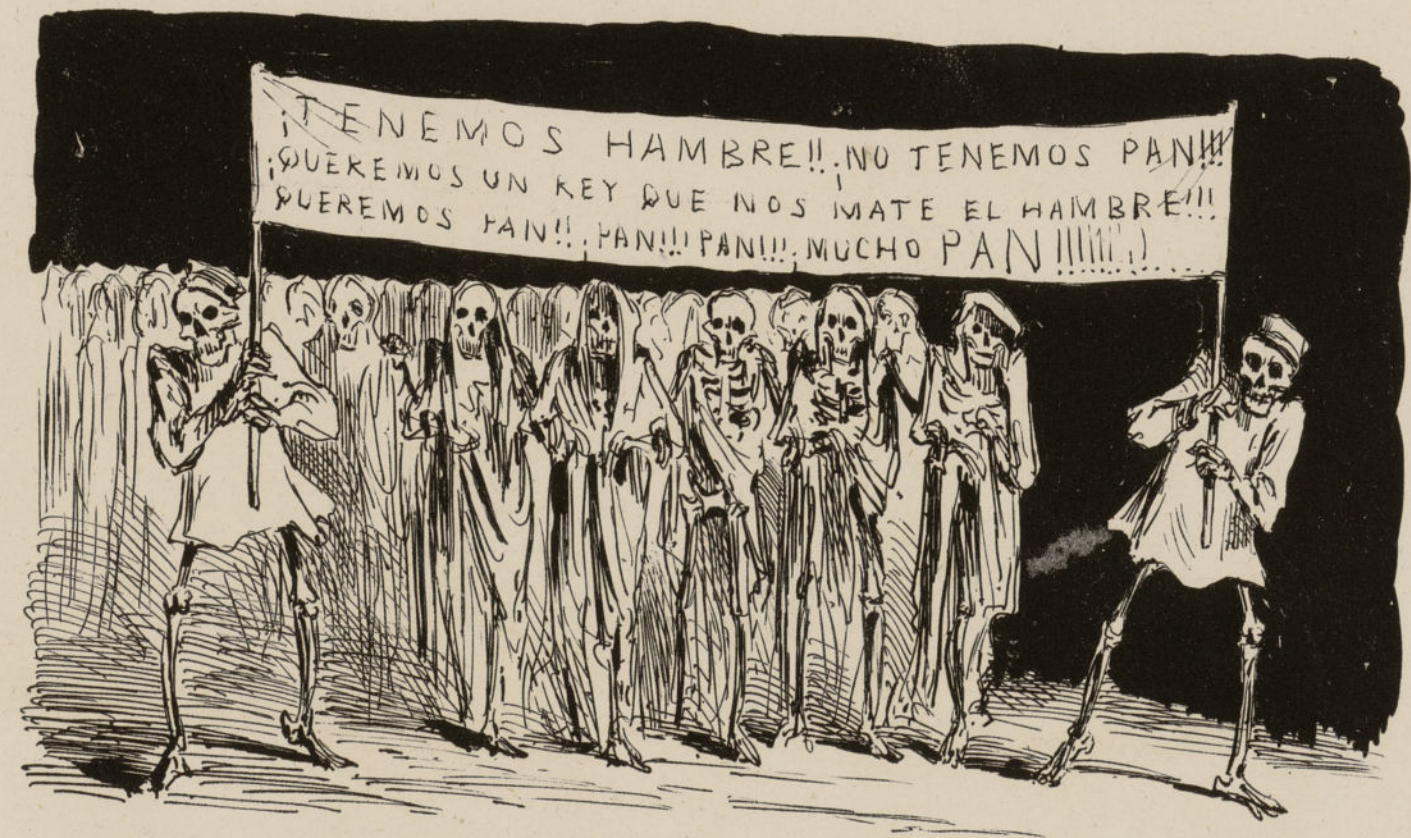 ¡TENEMOS HAMBRE!! ¡NO TENEMOS PAN!!!
¡QUEREMOS UN REY QUE NOS MATE EL HAMBRE!!!
QUEREMOS PAN!! ¡PAN!!! PAN!!! ¡MUCHO PAN!!!!!!!!